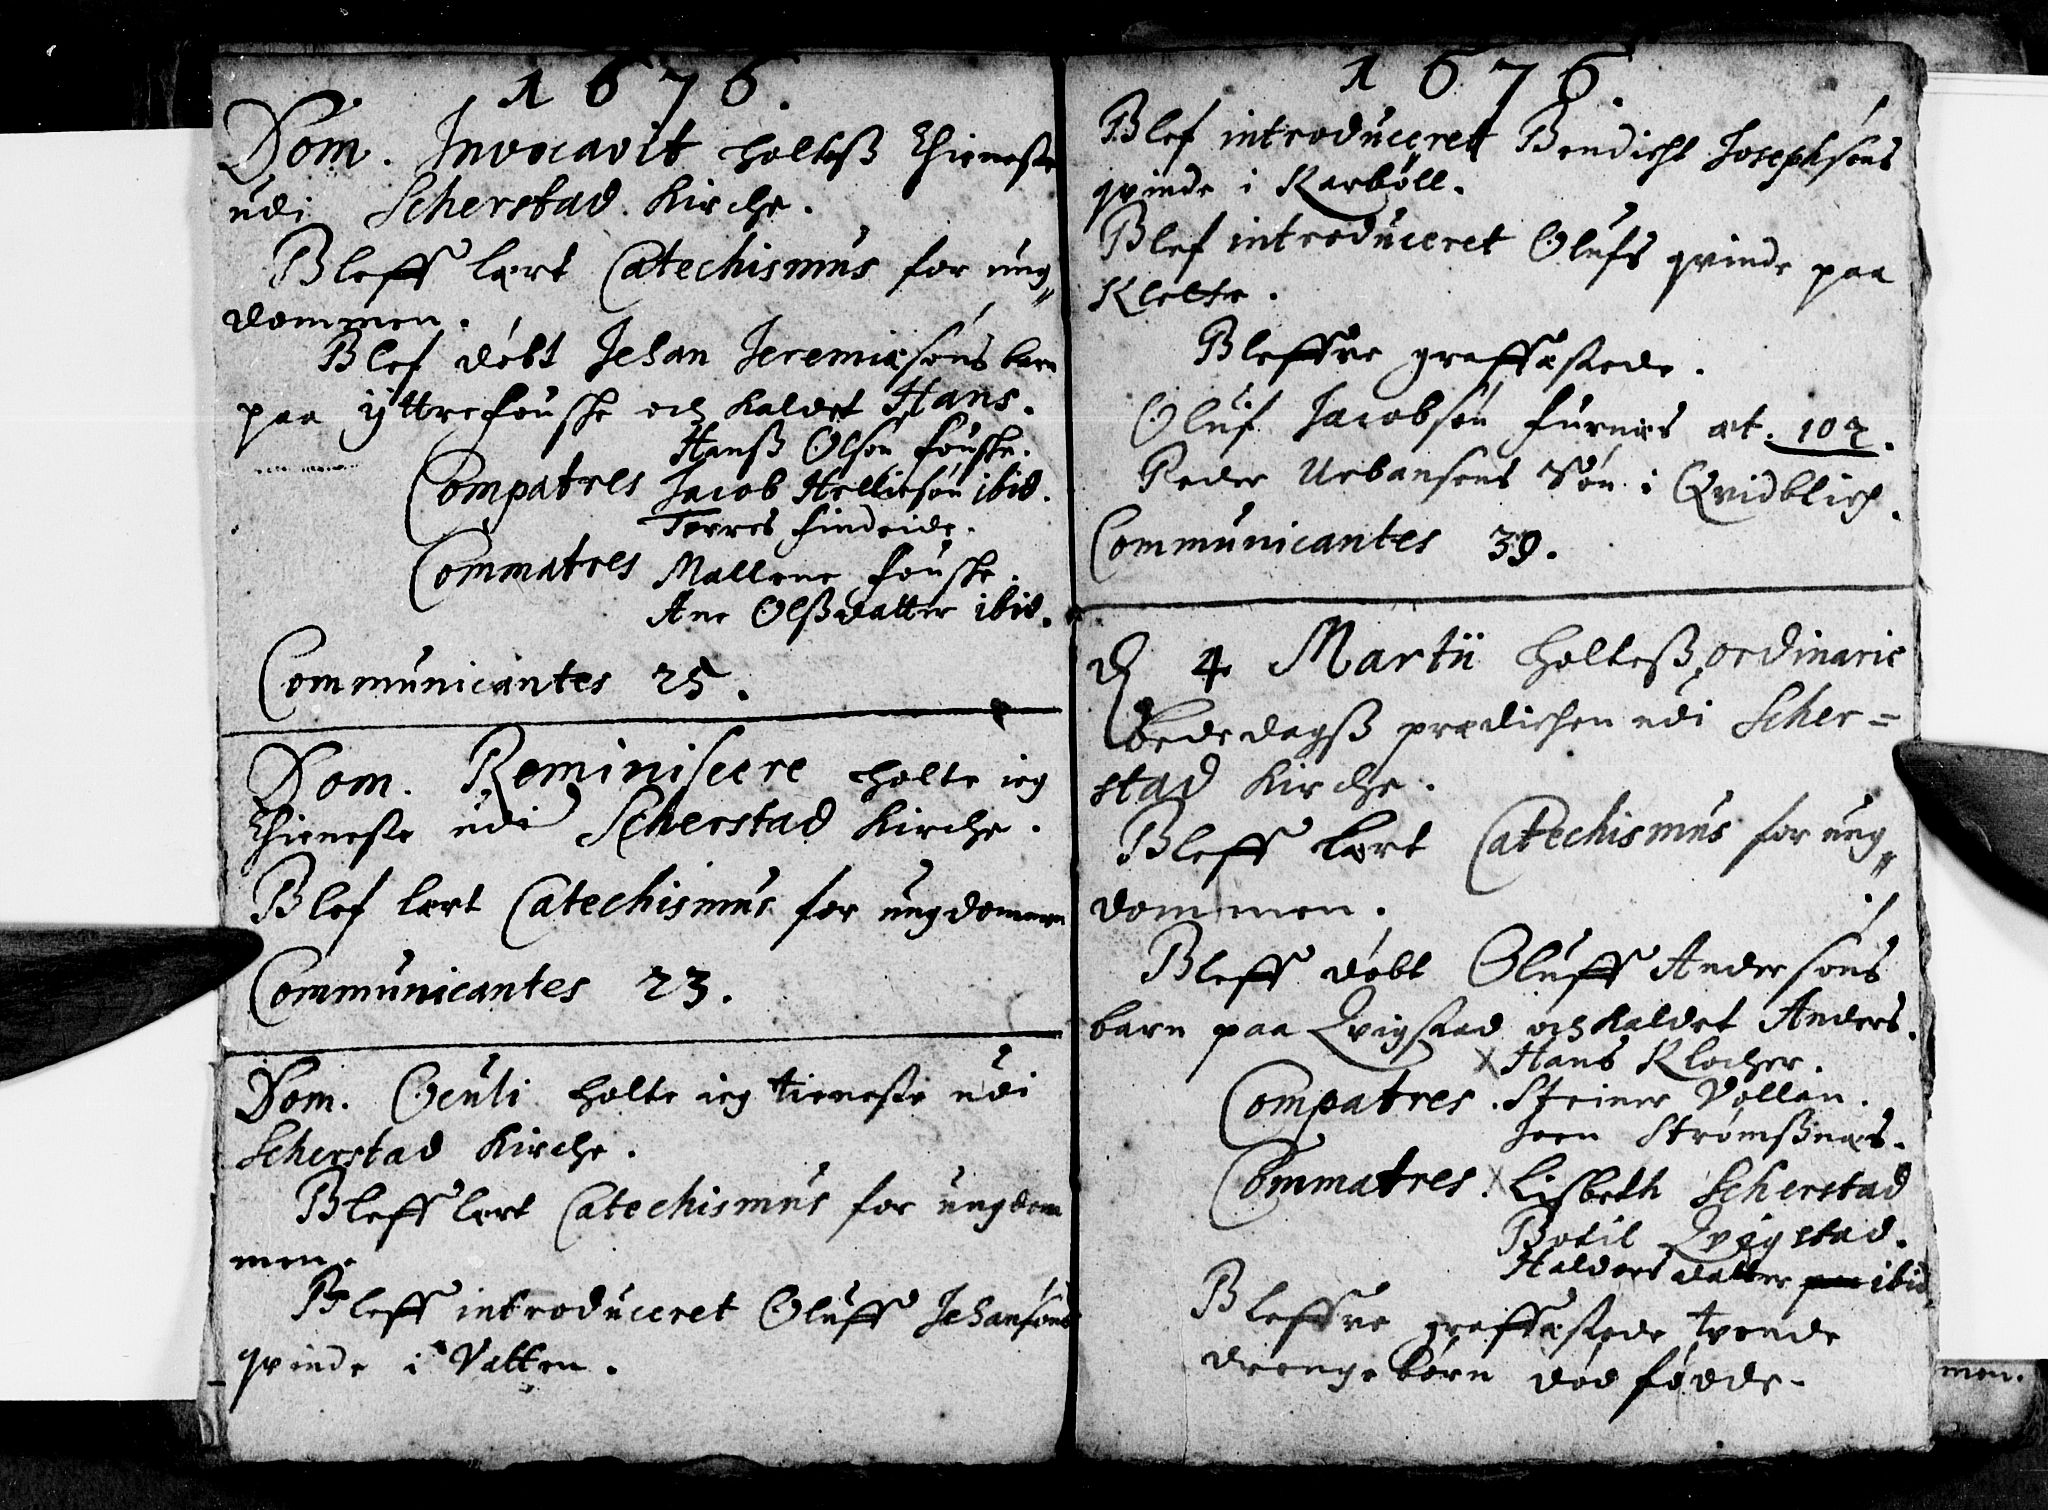 1676.
Dom. Invocavit holteß thieneste
udi Scherstad Kirche.
Bleff lært Catechismus for ung„
dommen.
Blef døbt Jehan Jeremiæsøns barn
paa yttrefouske och kaldet Hans.
Hanß Olson fouske.
Compatres Jacob Helliesøn ibid.
Torres findeide.
Commatres Mallene fouske.
Ane Olßdatter ibid.
Communicantes 25.
Dom. Reminiscere holte ieg
thieneste udi Scherstad Kirche.
Blef lært Catechismus for ungdommen
Communicantes 23.
Dom. Oculi holte ieg tieneste udi
Scherstad Kirche.
Bleff lært Catechismus for ungdom
men.
Bleff introduceret Oluff Jehansøns
qvinde i Vatten.
1676.
Blef introduceret Bendicht Josephsøns
qvinde i Karbøll.
Blef introduceret Olufs qvinde paa
Klette.
Bleffve graffæstede.
Oluf Jacobsøn furnæs æt. 102.
Peder Urbansøns Søn i Qvidblich.
Communicantes 39.
D 4 Martii holteß ordinarie
bededagß prædichen udi Scher=
stad Kirche.
Bleff lært Catechismus for ung„
dommen.
Bleff døbt Oluff Andersøns
barn paa Qvigstad och kaldet Anders.
Hans Klocher.
Compatres. Steiner Vollen.
Joen Strømßnæs.
Commatres. Lisbeth Scherstad
Botil Qvigstad.
Haldors datter ibid.
Bleffve graffæstede tvende
drengebørn død fødde.
men.